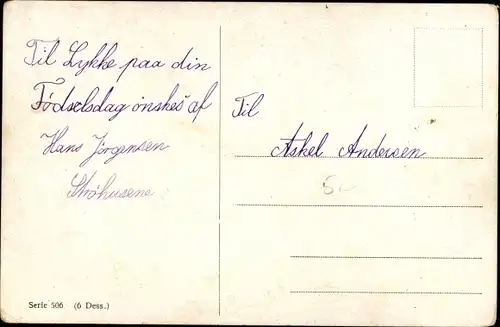 Til Lykke paa din
Fødselsdag ønskes af
Hans Jörgensen
Ströhusene
Til
Askel Andersen
5-
Serie 506 (6 Dess.)